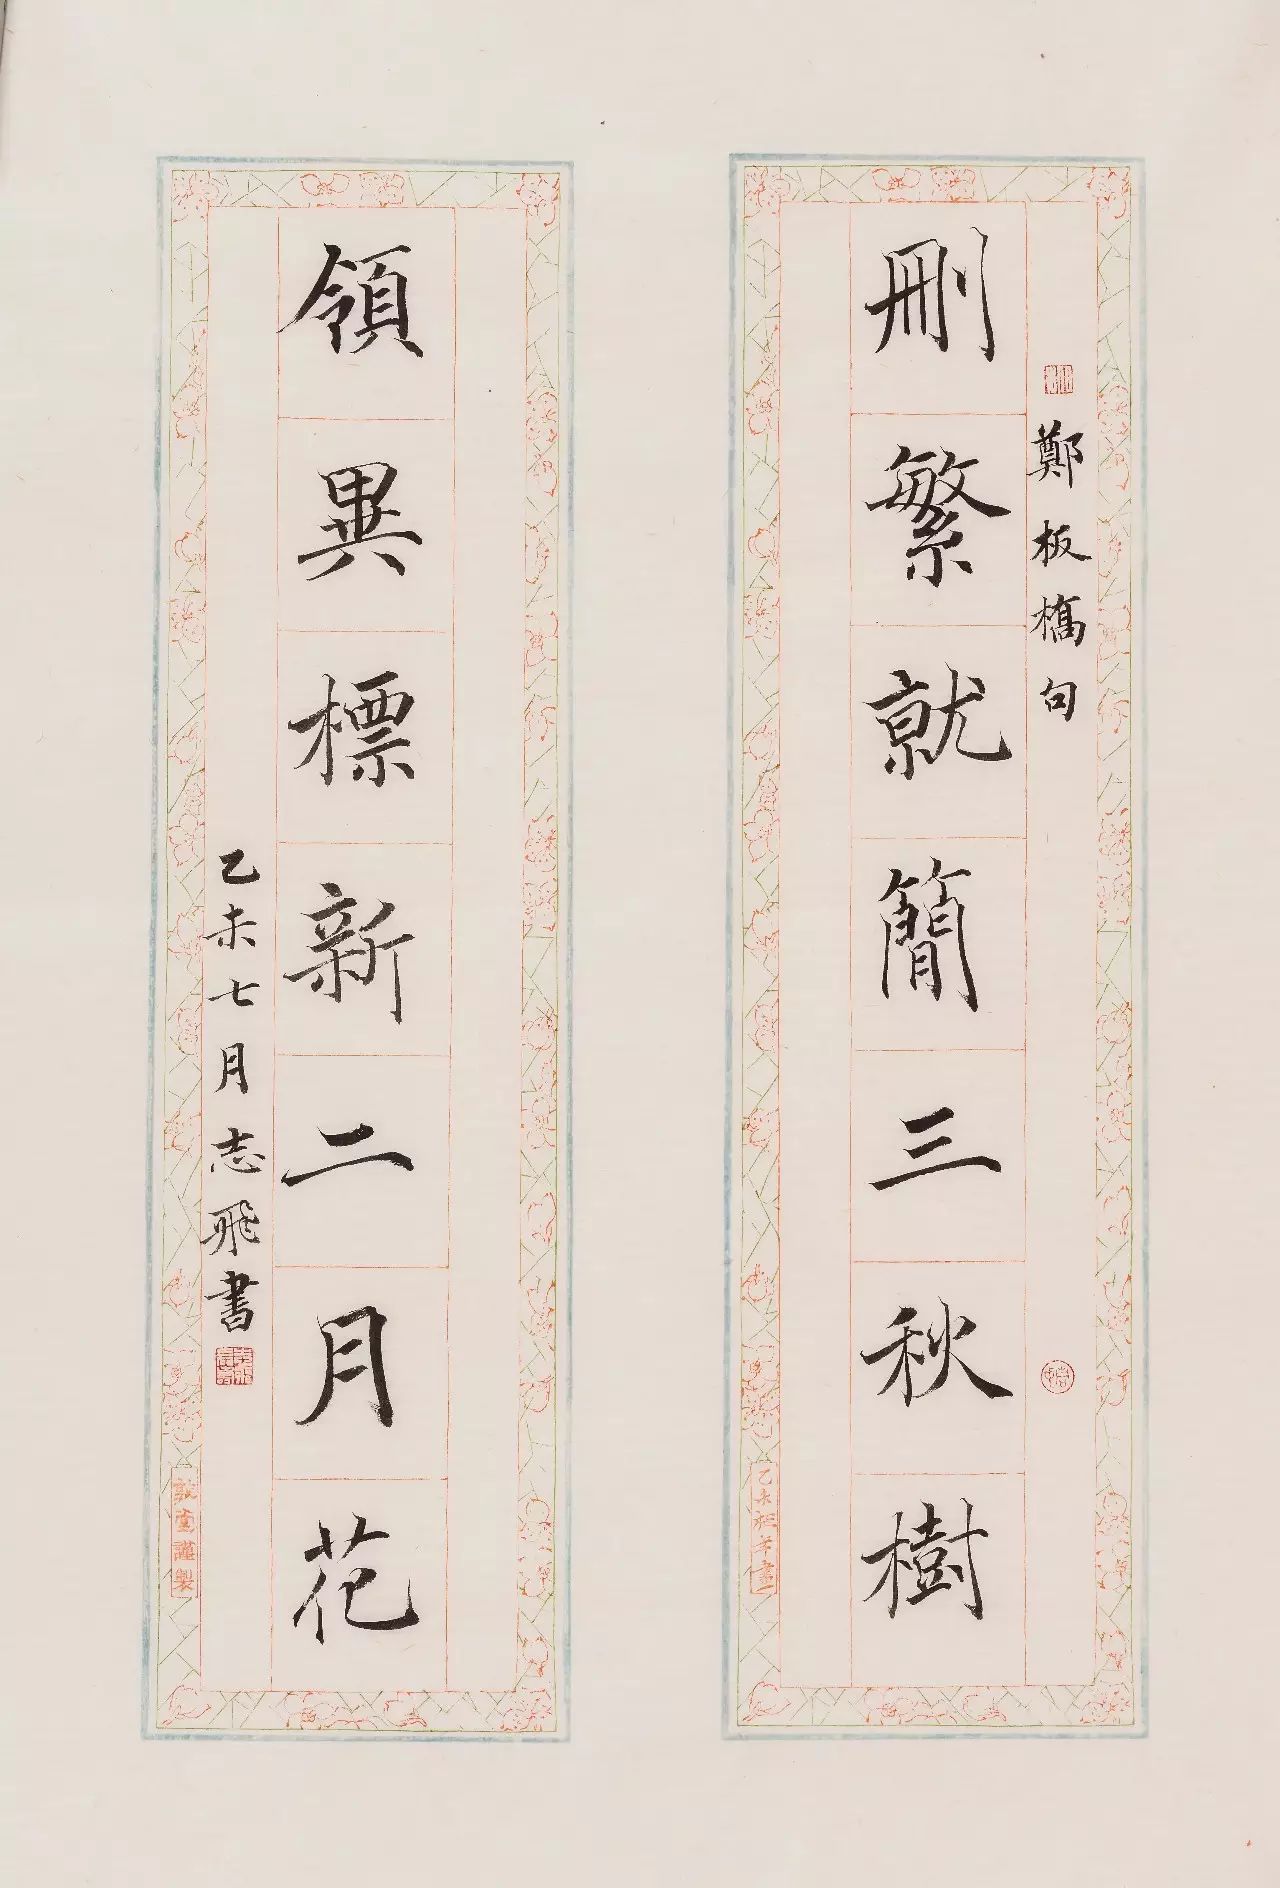 鄭板橋句
刪繁就簡三秋樹
領異標新二月花
乙未七月志飛書
敦堂謹製